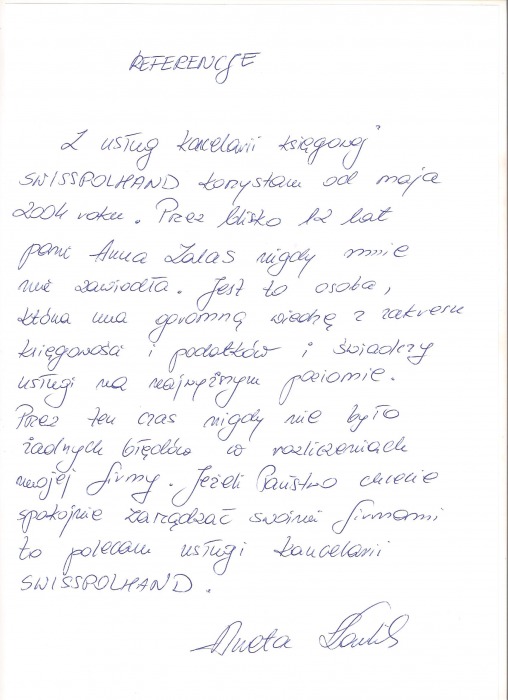 REFERENCJE
Z usług kancelarii księgowej
SWISSPOLHAND korzystam od maja
2004 roku. Przez blisko 12 lat
pani Anna Zalas nigdy mnie
nie zawiodła. Jest to osoba,
która ma ogromną wiedzę z zakresu
księgowości i podatków i świadczy
usługi na najwyższym poziomie.
Przez ten czas nigdy nie było
żadnych błędów w rozliczeniach
mojej firmy. Jeżeli Państwo chcecie
spokojnie zarządzać swoimi firmami
to polecam usługi kancelarii
SWISSPOLHAND.
Aneta